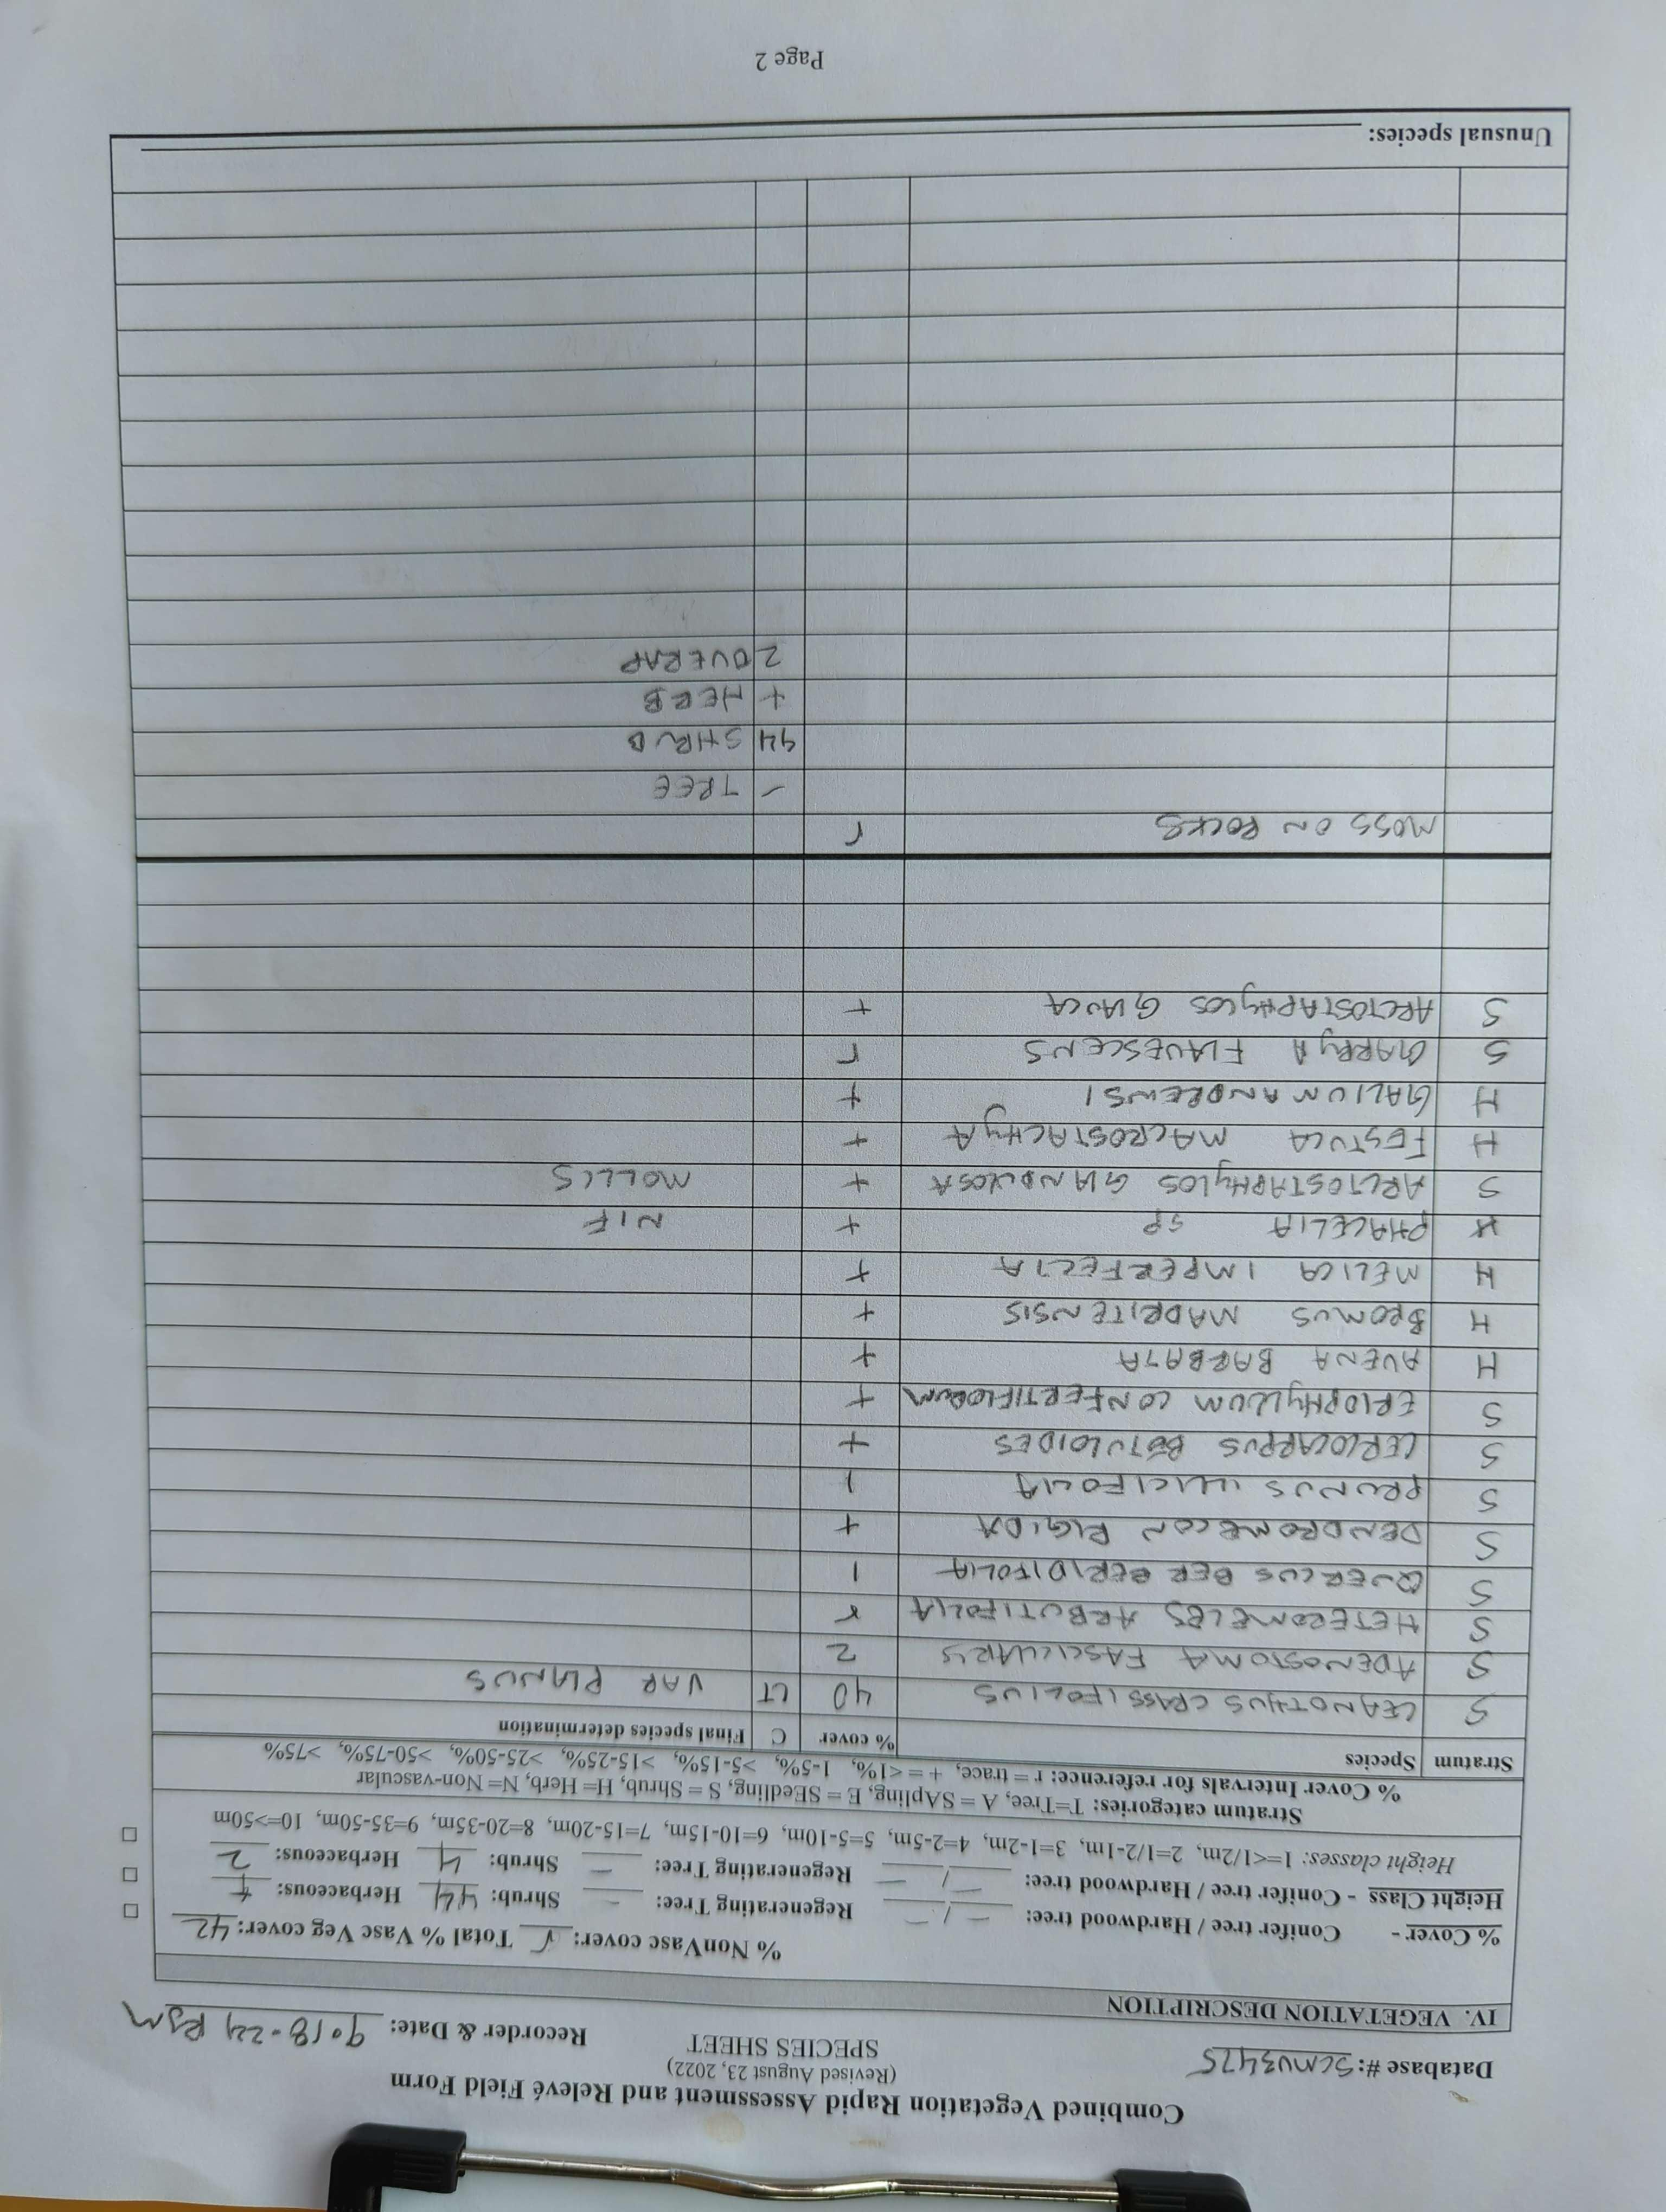 Combined Vegetation Rapid Assessment and Relevé Field Form
(Revised August 23, 2022)
SPECIES SHEET
Database #: SCMV3475 Recorder & Date: 9-18-24 RJM
IV. VEGETATION DESCRIPTION
% NonVasc cover: r Total % Vasc Veg cover: 42
% Cover - Conifer tree / Hardwood tree: – / – Regenerating Tree: – Shrub: 44 Herbaceous: +
Height Class - Conifer tree / Hardwood tree: – / – Regenerating Tree: – Shrub: 4 Herbaceous: 2
Height classes: 1=<1/2m, 2=1/2-1m, 3=1-2m, 4=2-5m, 5=5-10m, 6=10-15m, 7=15-20m, 8=20-35m, 9=35-50m, 10=>50m
Stratum categories: T=Tree, A = SApling, E = SEedling, S = Shrub, H= Herb, N= Non-vascular
% Cover Intervals for reference: r = trace, + = <1%, 1-5%, >5-15%, >15-25%, >25-50%, >50-75%, >75%
Stratum Species % cover C Final species determination
S CEANOTHUS CRASSIFOLIUS 40 CT VAR PLANUS
S ADENOSTOMA FASCICULARIS 2
S HETEROMELES ARBUTIFOLIA r
S QUERCUS BERBERIDIFOLIA 1
S DENDROMECON RIGIDA +
S PRUNUS ILLICIFOLIA 1
S CERCOCARPUS BETULOIDES +
S ERIOPHYLLUM CONFERTIFLORUM +
H AVENA BARBATA +
H BROMUS MADRITENSIS +
H MELICA IMPERFECTA +
H PHACELIA SP + NIF
S ARCTOSTAPHYLOS GLANDULOSA + MOLLIS
H FESTUCA MACROSTACHYA +
H GALIUM ANDREWSI +
S GARRYA FLAVESCENS r
S ARCTOSTAPHYLOS GLAUCA +
MOSS ON ROCKS r
– TREE
44 SHRUB
+ HERB
2 OVERAP
Unusual species:
Page 2